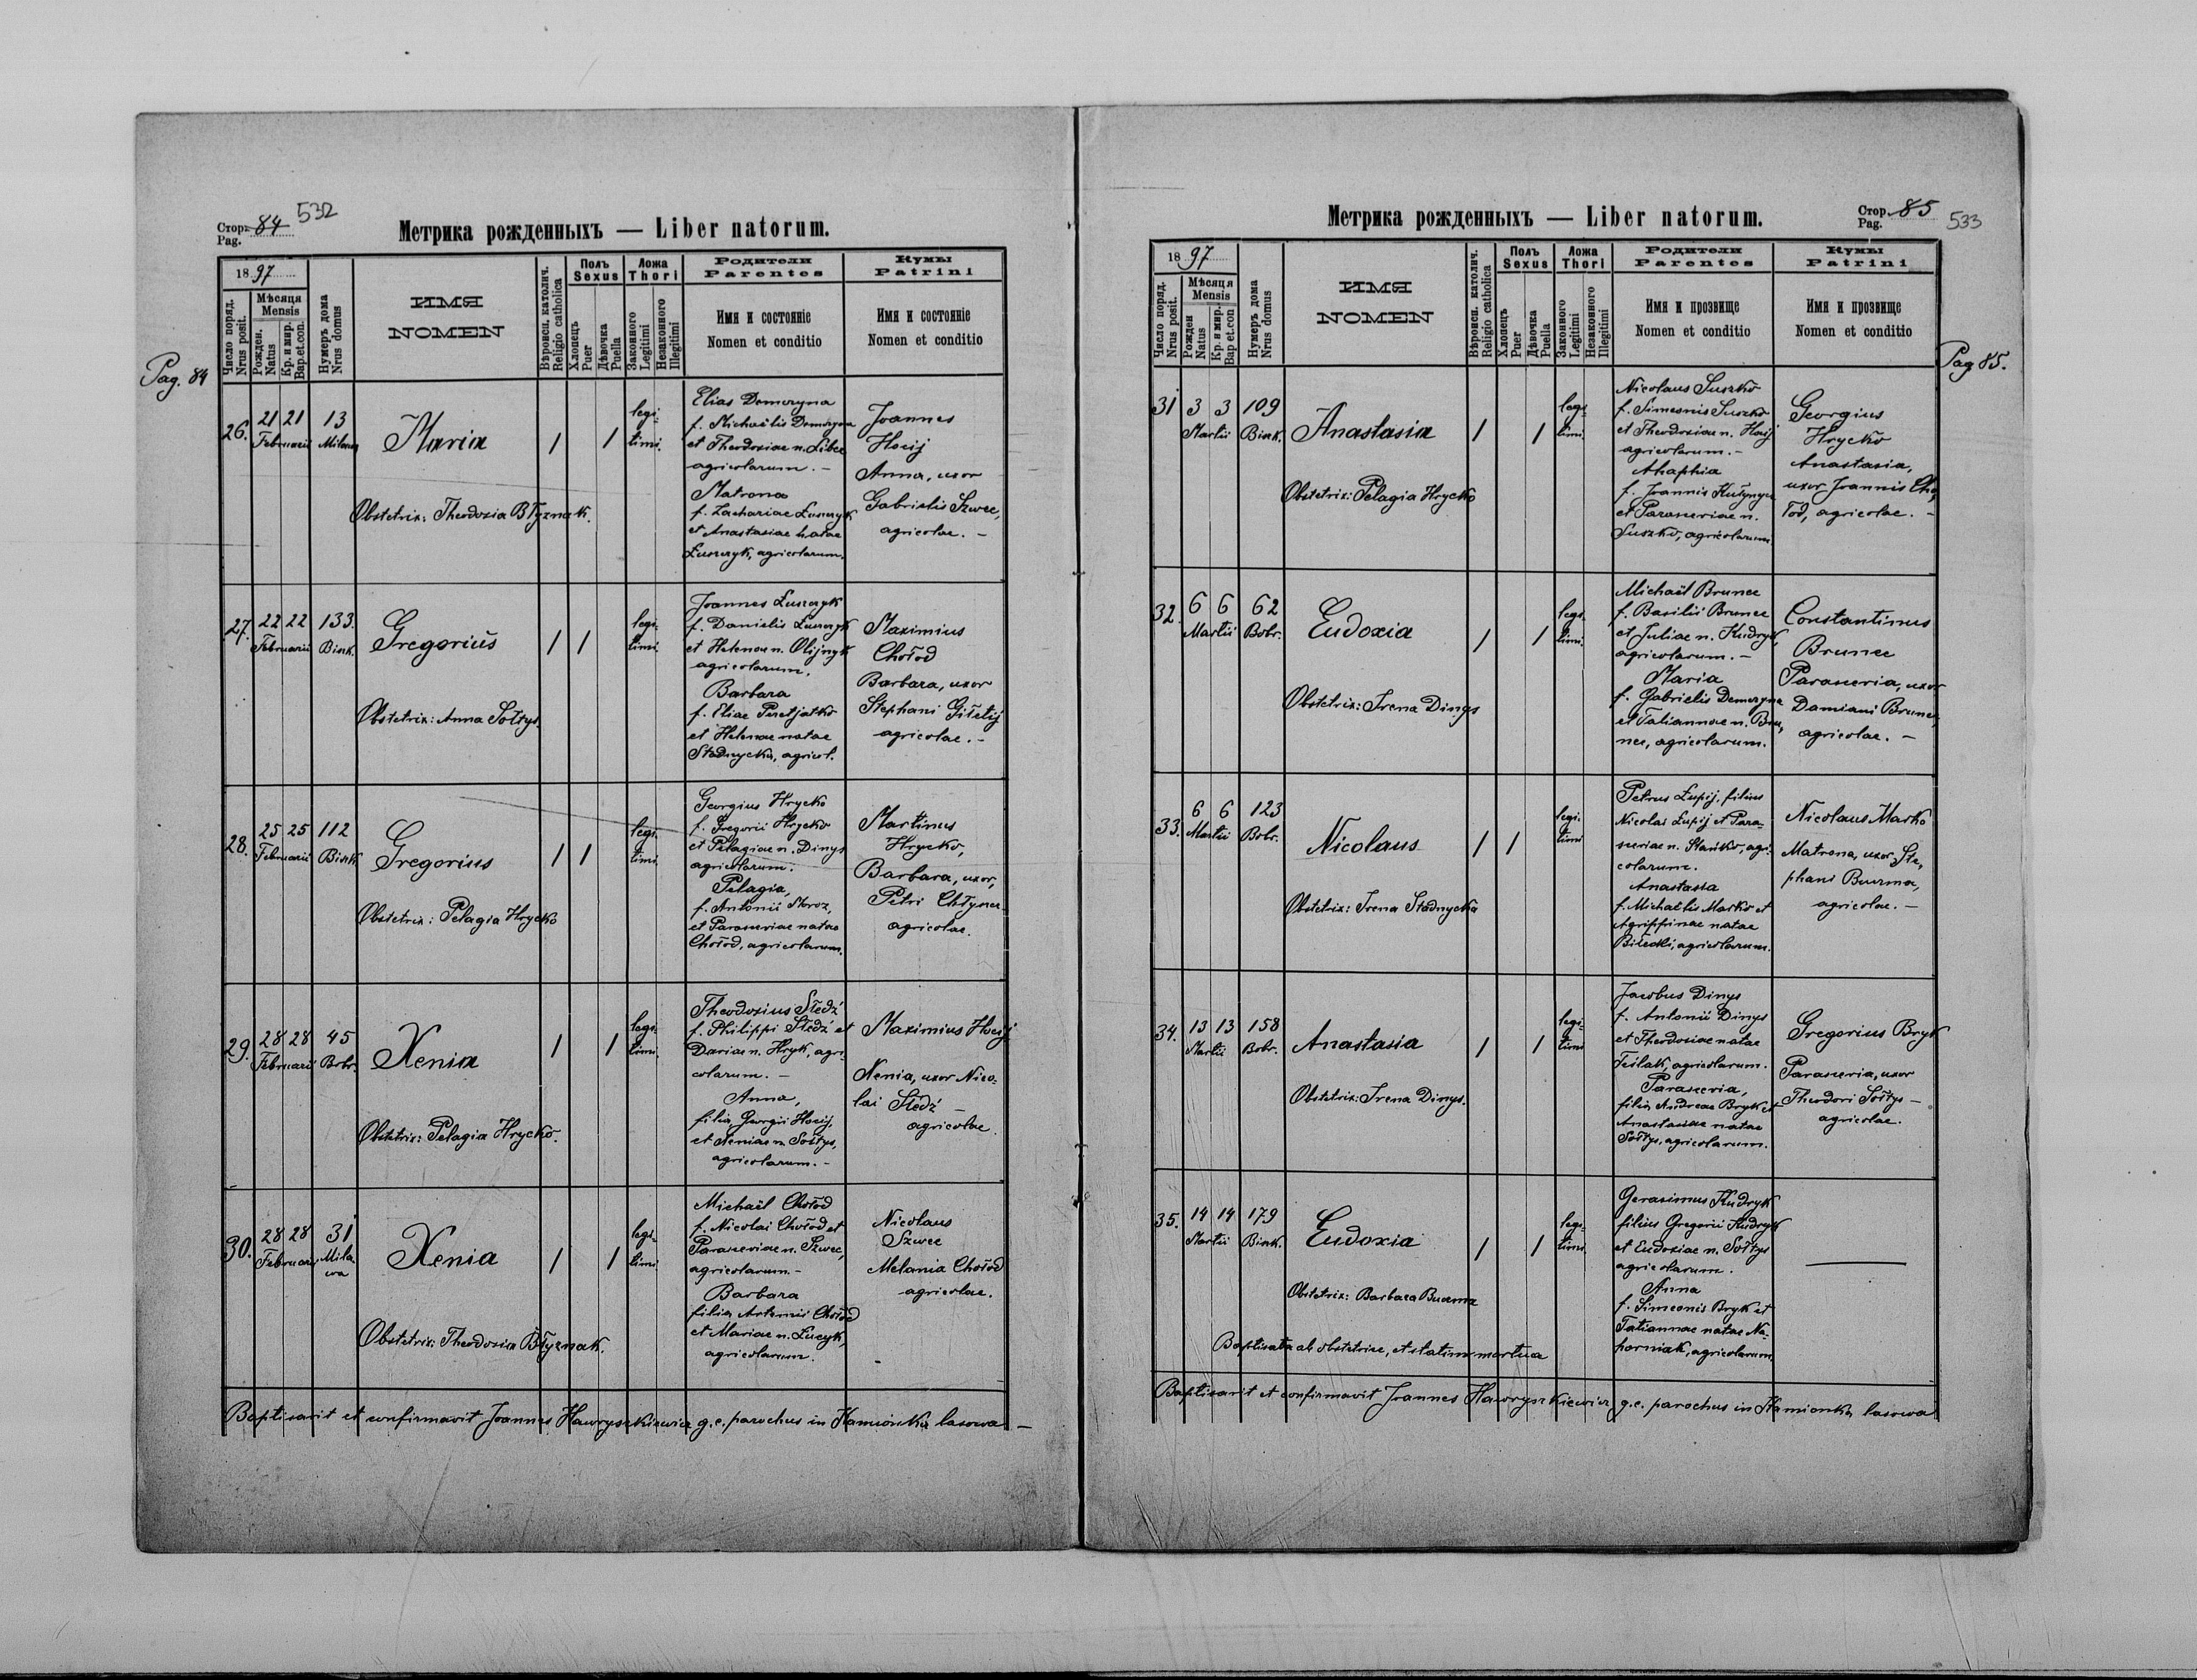 Стор. 84 532
Pag.
Метрика рожденныхъ — Liber natorum.
Pag. 84
1897
Число поряд.
Nrus posit.
Мѣсяця
Mensis
Рожден.
Natus
Кр. и мир.
Bap.et.con.
Нумеръ дома
Nrus domus
ИМЯ
NOMEN
Вѣроисп. католич.
Religio catholica
Полъ
Sexus
Хлопецъ
Puer
Дѣвочка
Puella
Ложа
Thori
Законного
Legitimi
Незаконного
Illegitimi
Родители
Parentes
Имя и состоянiе
Nomen et conditio
Кумы
Patrini
Имя и состоянiе
Nomen et conditio
26. 21 21 13
Februarii Milawa
Maria
/ /
legi-
timi.
Obstetrix: Theodosia Błyznak.
Elias Demczyna
f. Michaëlis Demczyna
et Theodosiae n. Liber
agricolarum. –
Matrona
f. Zachariae Łuszczyk
et Anastasiae natae
Łuszczyk, agricolarum.
Joannes
Hocij
Anna, uxor
Gabrielis Szwec,
agricolae. –
27. 22 22 133.
Februarii Bink.
Gregorius
/ /
legi-
timi.
Obstetrix: Anna Sołtys.
Joannes Łuszczyk
f. Danielis Łuszczyk
et Helenae n. Olijnyk
agricolarum.
Barbara
f. Eliae Peretjatko
et Helenae natae
Stadnycka, agricol.
Maximius
Chołod
Barbara, uxor
Stephani Giletij
agricolae. –
28. 25 25 112
Februarii Bink
Gregorius
/ /
legi-
timi.
Obstetrix: Pelagia Hrycko
Georgius Hrycko
f. Gregorii Hrycko
et Pelagiae n. Dinys
agricolarum.
Pelagia,
f. Antonii Moroz,
et Parasceviae natae
Chołod, agricolarum.
Martinus
Hrycko,
Barbara, uxor,
Petri Chłyner
agricolae.
29. 28 28 45
Februarii Bobr.
Xenia
/ /
legi-
timi.
Obstetrix: Pelagia Hrycko.
Theodosius Sledź
f. Philippi Sledź et
Dariae n. Hryk, agri-
colarum. –
Anna,
filia Georgii Hocij,
et Xeniae n. Sołtys,
agricolarum. –
Maximius Hocij
Xenia, uxor Nico-
lai Sledź –
agricolae.
30. 28 28 31
Februarii Mila-
wa
Xenia
/ /
legi-
timi
Obstetrix: Theodosia Błyznak.
Michaël Chołod
f. Nicolai Chołod et
Parasceviae n. Szwec,
agricolarum. –
Barbara
filia Artemii Chołod
et Mariae n. Łucyk,
agricolarum.
Nicolaus
Szwec
Melania Chołod
agricolae.
Baptisavit et confirmavit Joannes Hawryszkiewicz g. c. parochus in Kamionka lasowa –
Метрика рожденныхъ — Liber natorum.
Стор. 85 533
Pag.
Pag 85.
1897
Число поряд.
Nrus posit.
Мѣсяця
Mensis
Рожден
Natus
Кр. и мир.
Bap et.con
Нумеръ дома
Nrus domus
ИМЯ
NOMEN
Вѣроисп. католич.
Religio catholica
Полъ
Sexus
Хлопецъ
Puer
Дѣвочка
Puella
Ложа
Thori
Законного
Legitimi
Незаконного
Illegitimi
Родители
Parentes
Имя и прозвище
Nomen et conditio
Кумы
Patrini
Имя и прозвище
Nomen et conditio
31 3 3 109
Martii Bink.
Anastasia
/ /
legi-
timi.
Obstetrix: Pelagia Hrycko
Nicolaus Suszko
f. Simeonis Suszko
et Theodosiae n. Hocij
agricolarum. –
Ahaphia
f. Joannis Kułynycz
et Parasceviae n.
Suszko, agricolarum
Georgius
Hrycko
Anastasia,
uxor Joannis Cho-
łod, agricolae. –
32. 6 6 62
Martii Bobr.
Eudoxia
/ /
legi-
timi.
Obstetrix: Irena Dinys
Michaël Brunec
f. Basilii Brunec
et Juliae n. Kudryk,
agricolarum. –
Maria
f. Gabrielis Demczyna
et Tatiannae n. Bru-
nec, agricolarum.
Constantinus
Brunec
Parascevia, uxor
Damiani Brunec,
agricolae. –
33. 6 6 123
Martii Bobr.
Nicolaus
/ /
legi-
timi
Obstetrix: Irena Stadnycka
Petrus Łupij, filius
Nicolai Łupij et Para-
sceviae n. Stańko, agri-
colarum.
Anastasia
f. Michaëlis Marko et
Agrippinae natae
agricolarum.
Nicolaus Marko
Matrona, uxor Ste-
phani Buczma,
agricolae. –
34. 13 13 158
Martii Bobr.
Anastasia
/ /
legi-
timi
Obstetrix: Irena Dinys.
Jacobus Dinys
f. Antonii Dinys
et Theodosiae natae
agricolarum.
Parascevia,
filia Andreae Bryk et
Anastasiae natae
Sołtys, agricolarum.
Gregorius Bryk
Parascevia, uxor
Theodori Sołtys –
agricolae.
35. 14 14 179
Martii Bink.
Eudoxia
/ /
legi-
timi.
Obstetrix: Barbara Buczma
Baptisata ab obstetrice, et statim mortua
Gerasimus Kudryk
filius Gregorii Kudryk
et Eudoxiae n. Sołtys
agricolarum.
Anna
f. Simeonis Bryk et
Tatiannae natae Na-
porniak, agricolarum.
Baptisavit et confirmavit Joannes Hawryszkiewicz g. c. parochus in Kamionka lasowa